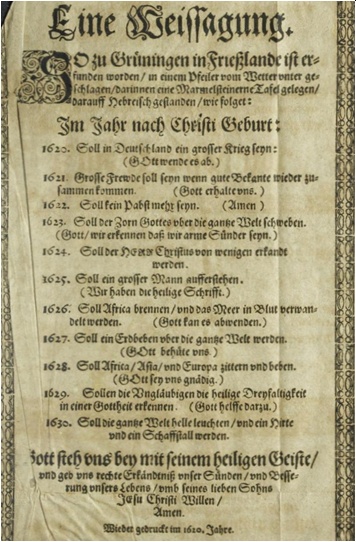 Eine Weissagung.
SO zu Grüningen in Frießlande ist er-
funden worden/ in einem Pfeiler vom Wetter vnter ge-
schlagen/ darinnen eine Marmelsteinerne Tafel gelegen/
darauff Hebreisch gestanden/ wie folget:
Im Jahr nach Christi Geburt:
1620. Soll in Deutschland ein grosser Krieg seyn:
(GOtt wende es ab.)
1621. Grosse Frewde soll seyn wenn gute Bekante wieder zu-
sammen kommen. (Gott erhalte vns.)
1622. Soll kein Pabst mehr seyn. (Amen)
1623. Soll der Zorn Gottes vber die gantze Welt schweben.
(Gott/ wir erkennen daß wir arme Sünder seyn.)
1624. Soll der HERR Christus von wenigen erkandt
werden.
1625. Soll ein grosser Mann aufferstehen.
(Wir haben die heilige Schrifft.)
1626. Soll Africa brennen/ vnd das Meer in Blut verwan-
delt werden. (Gott kan es abwenden.)
1627. Soll ein Erdbeben vber die gantze Welt werden.
(GOtt behüte vns.)
1628. Soll Africa/ Asia/ vnd Europa zittern vnd beben.
(GOtt sey vns gnädig.)
1629. Sollen die Vngläubigen die heilige Dreyfaltigkeit
in einer Gottheit erkennen. (Gott helffe darzu.)
1630. Soll die gantze Welt helle leuchten/ vnd ein Hirte
vnd ein Schaffstall werden.
Gott steh vns bey mit seinem heiligen Geiste/
vnd geb vns rechte Erkäntniß vnser Sünden/ vnd Besse-
rung vnsers Lebens/ vmb seines lieben Sohns
Jesu Christi Willen/
Amen.
Wieder gedruckt im 1620. Jahre.